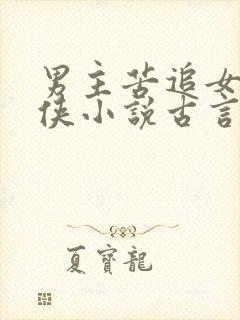 男主苦追女
俠小說古言
夏寶龍